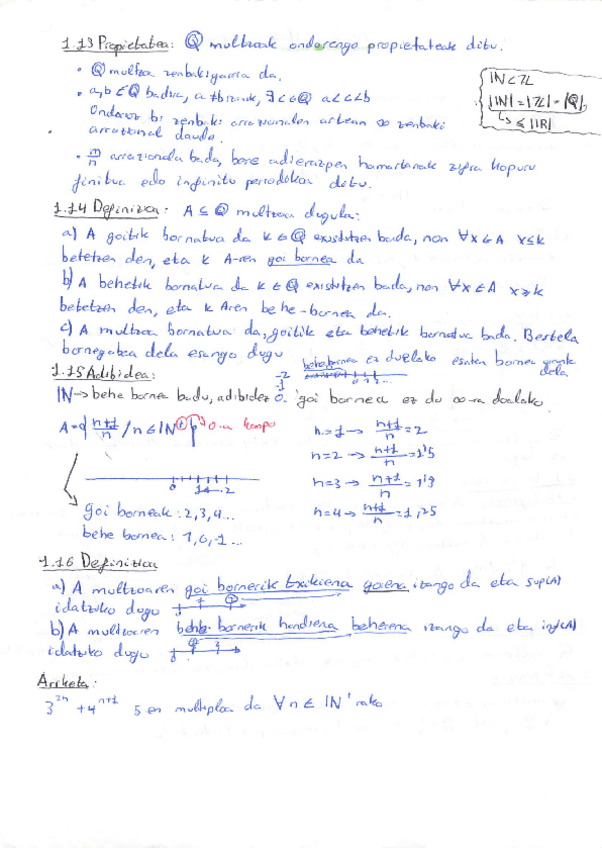 1.13 Propietatea: ℚ multzoak ondorengo propietateak ditu.
• ℚ multzoa zenbakigarria da.
• a,b ∈ ℚ badira, a≠b izanik, ∃ c ∈ ℚ a<c<b
Ondorioz bi zenbaki arrazionalen artean ∞ zenbaki
arrazional daude.
• m/n arrazionala bada, bere adierazpen hamartarrak zifra kopuru
finitua edo infinitu periodikoa ditu.
ℕ<ℤ
|ℕ|=|ℤ|=|ℚ|
↳ ≤ |ℝ|
1.14 Definizioa: A ⊆ ℚ multzoa dugula:
a) A goitik bornatua da k ∈ ℚ existitzen bada, non ∀x∈A x≤k
betetzen den, eta k A-ren goi bornea da
b) A behetik bornatua da k ∈ ℚ existitzen bada, non ∀x∈A x≥k
betetzen den, eta k Aren behe-bornea da.
c) A multzoa bornatua da, goitik eta behetik bornatua bada. Bestela
bornegabea dela esango dugu
1.15 Adibidea:
ℕ→behe bornea badu, adibidez 0. goi bornea ez du ∞-ra doalako
-2
-1
A={n+1/n / n∈ℕ
n=1 → n+1/n = 2
n=2 → n+1/n = 1'5
n=3 → n+1/n = 1'3
n=4 → n+1/n = 1,25
0 1 2
goi borneak: 2,3,4...
behe bornea: 1,0,-1...
1.16 Definizioa
a) A multzoaren goi bornerik txikiena gorena izango da eta sup(A)
idatziko dugu
b) A multzoaren behe-bornerik handiena beherena izango da eta inf(A)
idatziko dugu
Ariketa:
3²ⁿ +4ⁿ⁺¹ 5 en multiploa da ∀n∈ ℕ 'rako